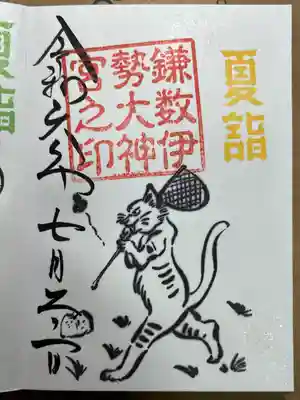 夏詣
鎌数伊
勢大神
宮之印
令和六年七月
夏詣